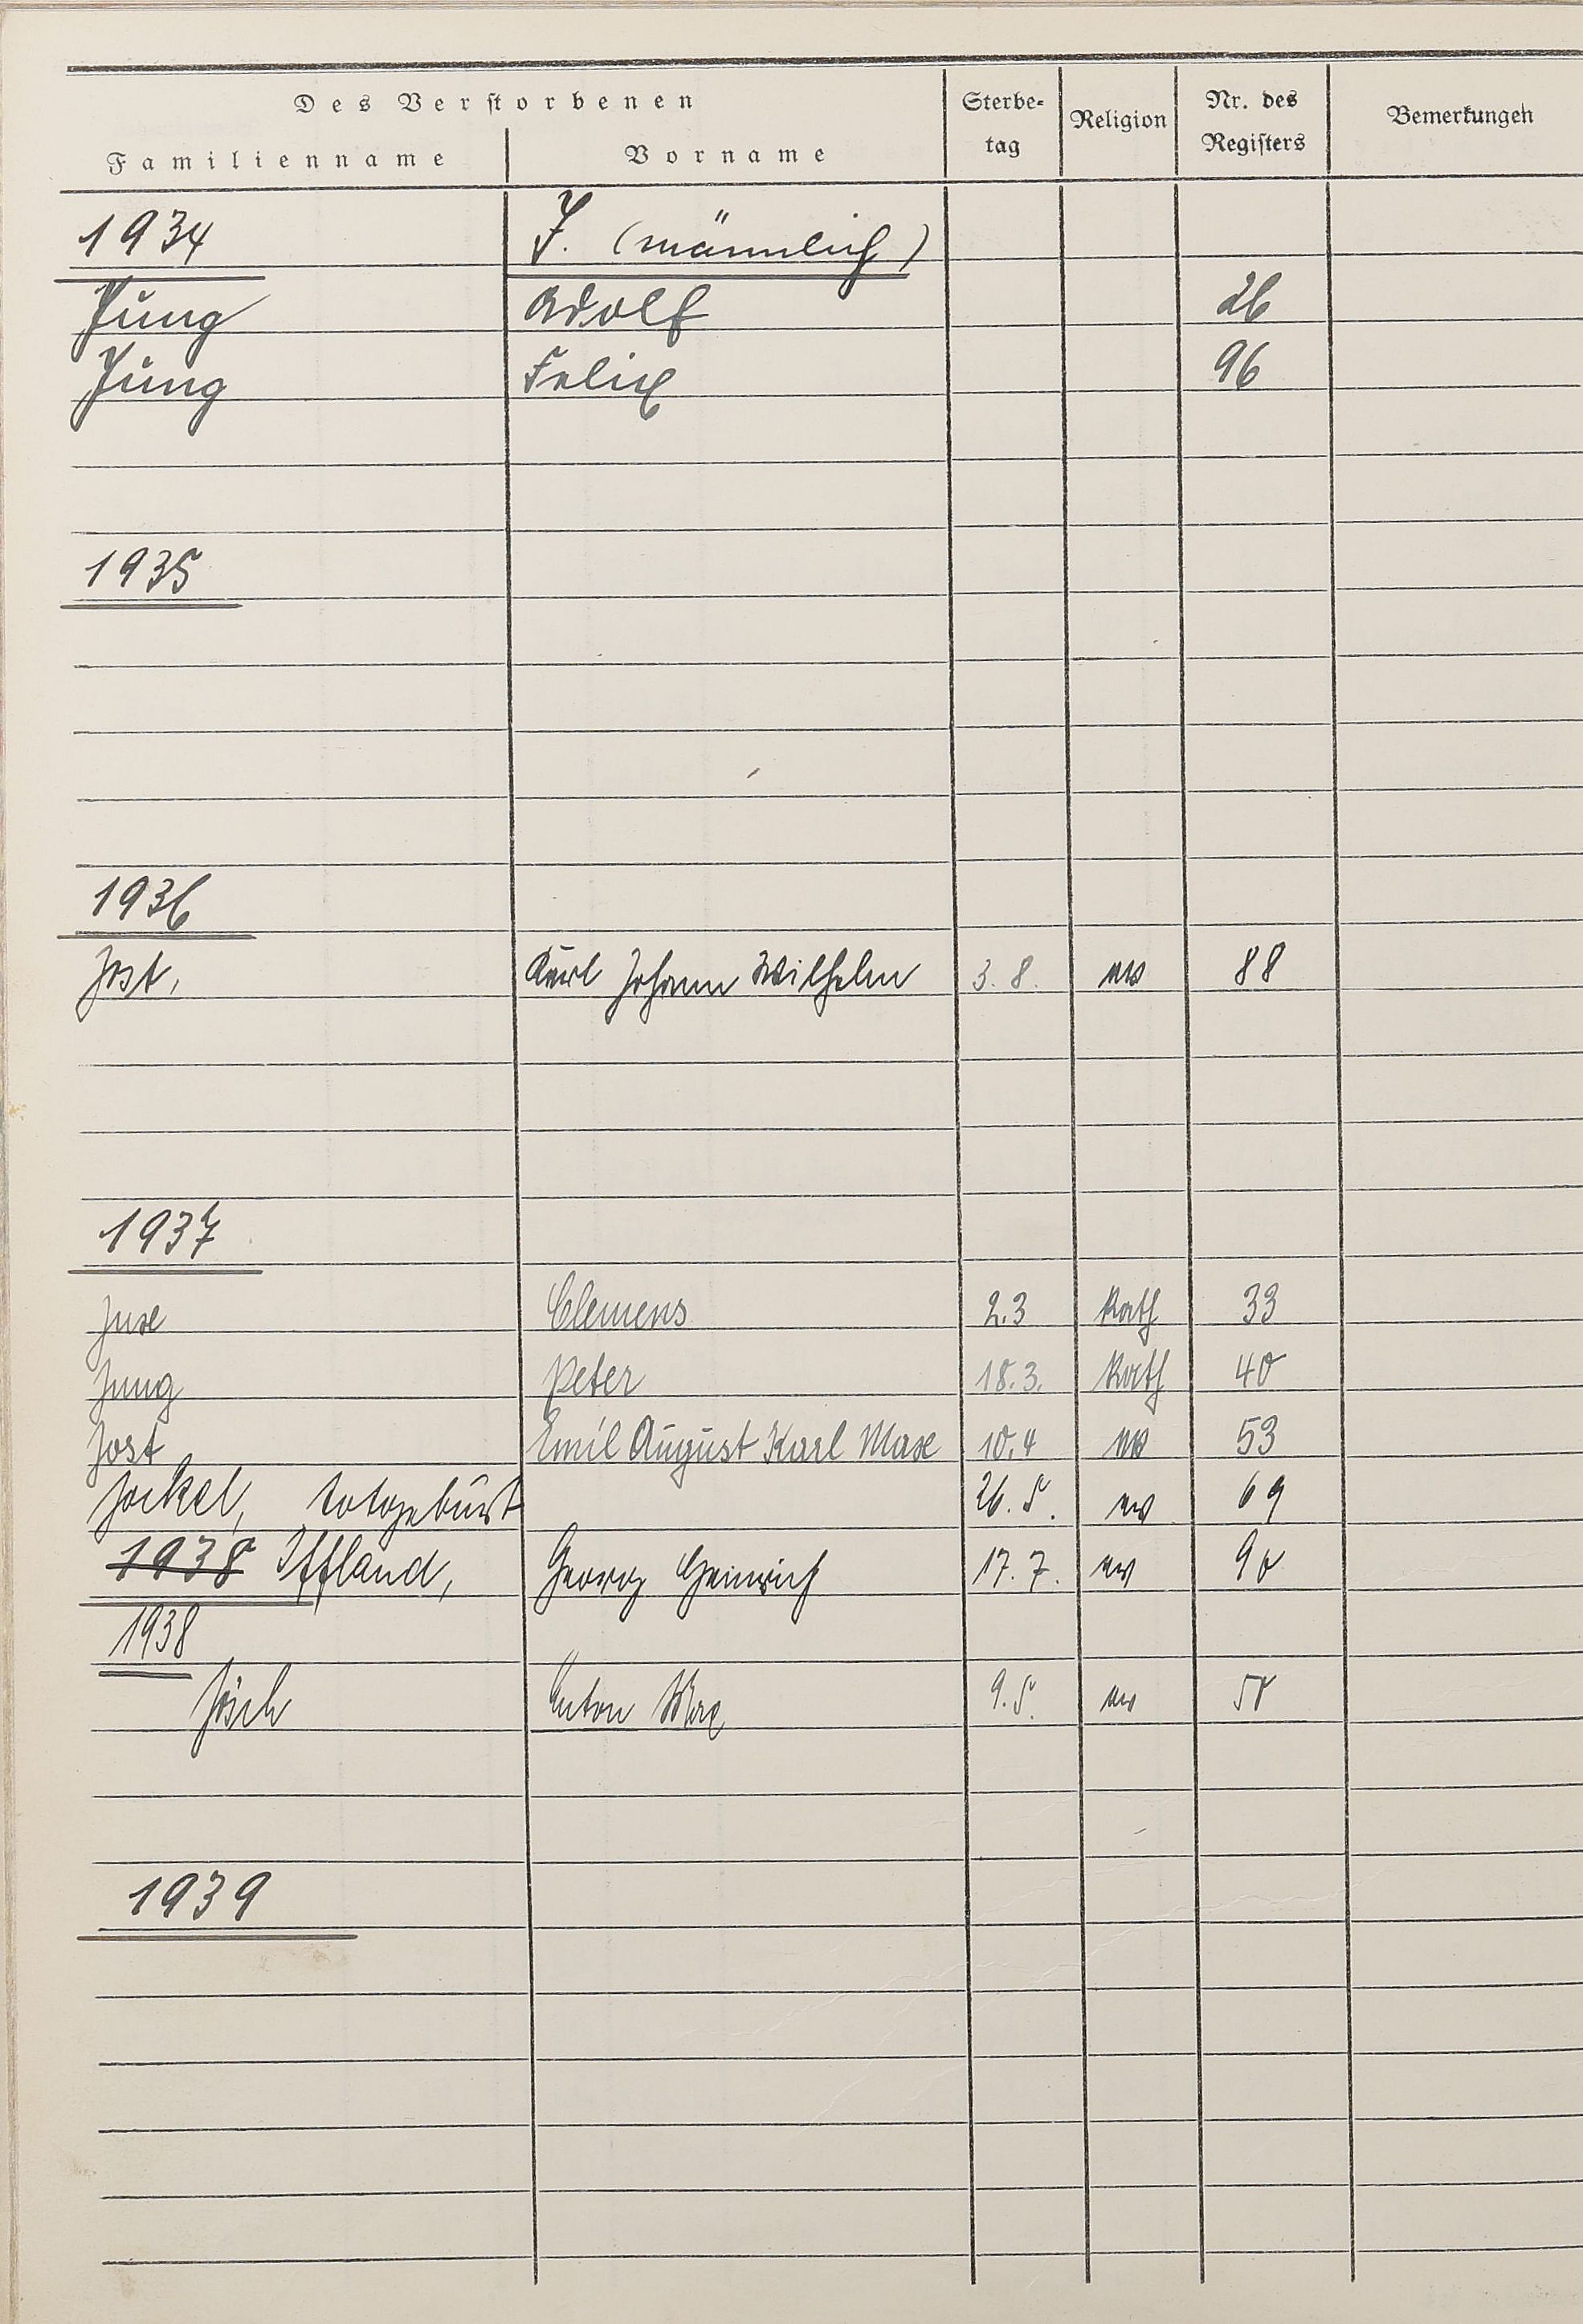 Des Verstorbenen
Familienname Vorname Sterbe-tag Religion Nr. des Registers Bemerkungen
1934 J. (männlich)
Jung Adolf 26
Jung Felix 96
1935
1936
Jost, Karl Johann Wilhelm 3. 8. ev 88
1937
Juxe Clemens 2.3 Kath 33
Jung Peter 18.3. Kath 40
Jost Emil August Karl Max 10.4 ev 53
Jockel, Totgeburt 26. 5. ev 69
1938 Iffland, Georg Heinrich 17. 7. ev 90
1938
Jösch Anton Max 9. 5. ev
1939